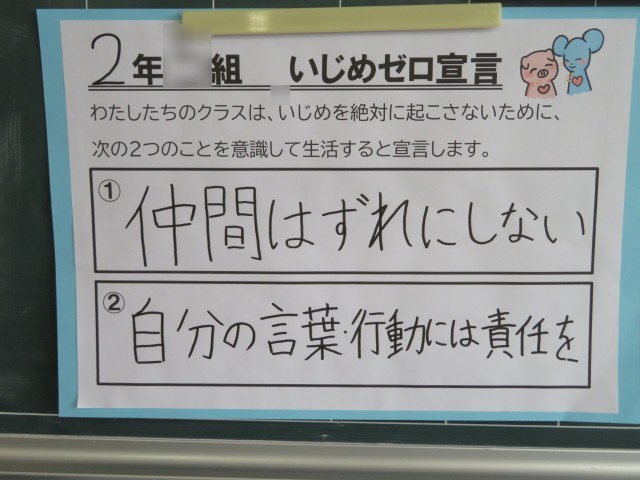 2年 組 いじめゼロ宣言
わたしたちのクラスは、いじめを絶対に起こさないために、
次の2つのことを意識して生活すると宣言します。
① 仲間はずれにしない
② 自分の言葉・行動には責任を